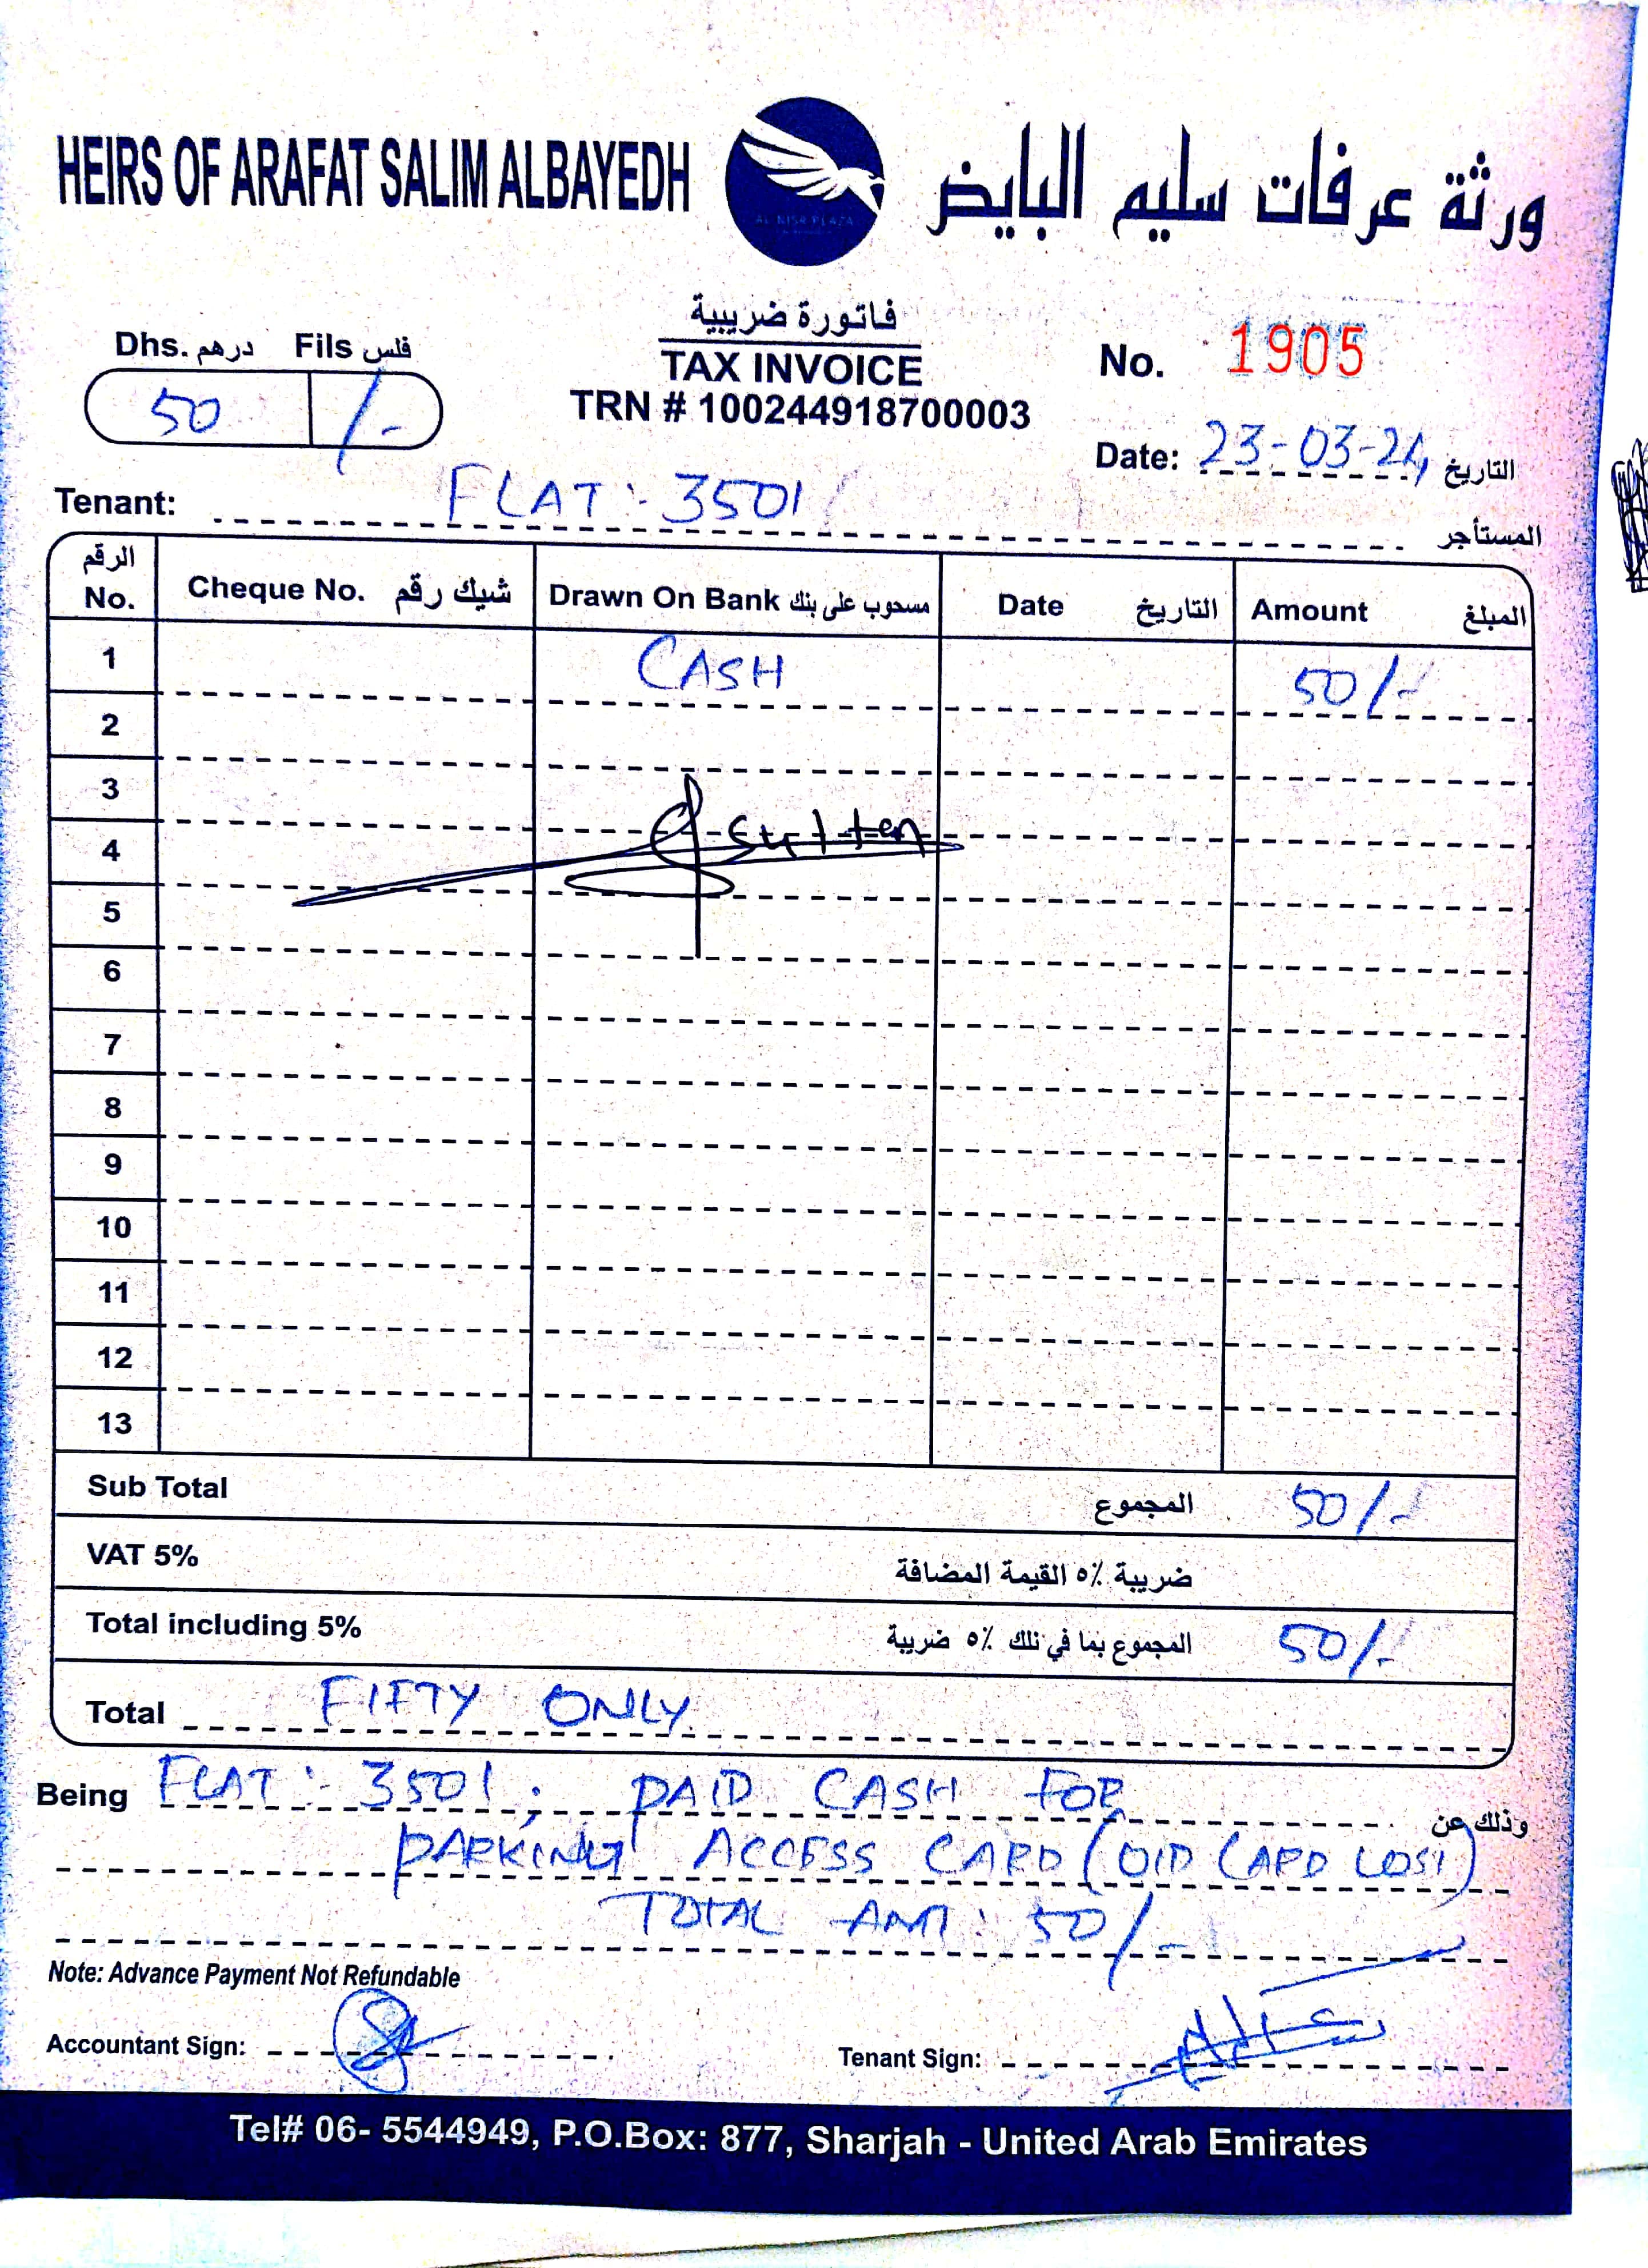 HEIRS OF ARAFAT SALIM ALBAYEDH
ورثة عرفات سليم البايض
AL NISR PLAZA
فاتورة ضريبية
TAX INVOICE
TRN # 100244918700003
Dhs. درهم Fils فلس
50 /-
No. 1905
Date: 23-03-24 التاريخ
Tenant: FLAT :- 3501 المستأجر
الرقم No. Cheque No. شيك رقم Drawn On Bank مسحوب على بنك Date التاريخ Amount المبلغ
1 CASH 50/-
2
3
4 sultan
5
6
7
8
9
10
11
12
13
Sub Total المجموع 50/-
VAT 5% ضريبة ٥٪ القيمة المضافة
Total including 5% المجموع بما في ذلك ٥٪ ضريبة 50/-
Total FIFTY ONLY
Being FLAT :- 3501 ; PAID CASH FOR وذلك عن
PARKING ACCESS CARD (OLD CARD LOST)
TOTAL AMT : 50/-
Note: Advance Payment Not Refundable
Accountant Sign:
Tenant Sign:
Tel# 06- 5544949, P.O.Box: 877, Sharjah - United Arab Emirates